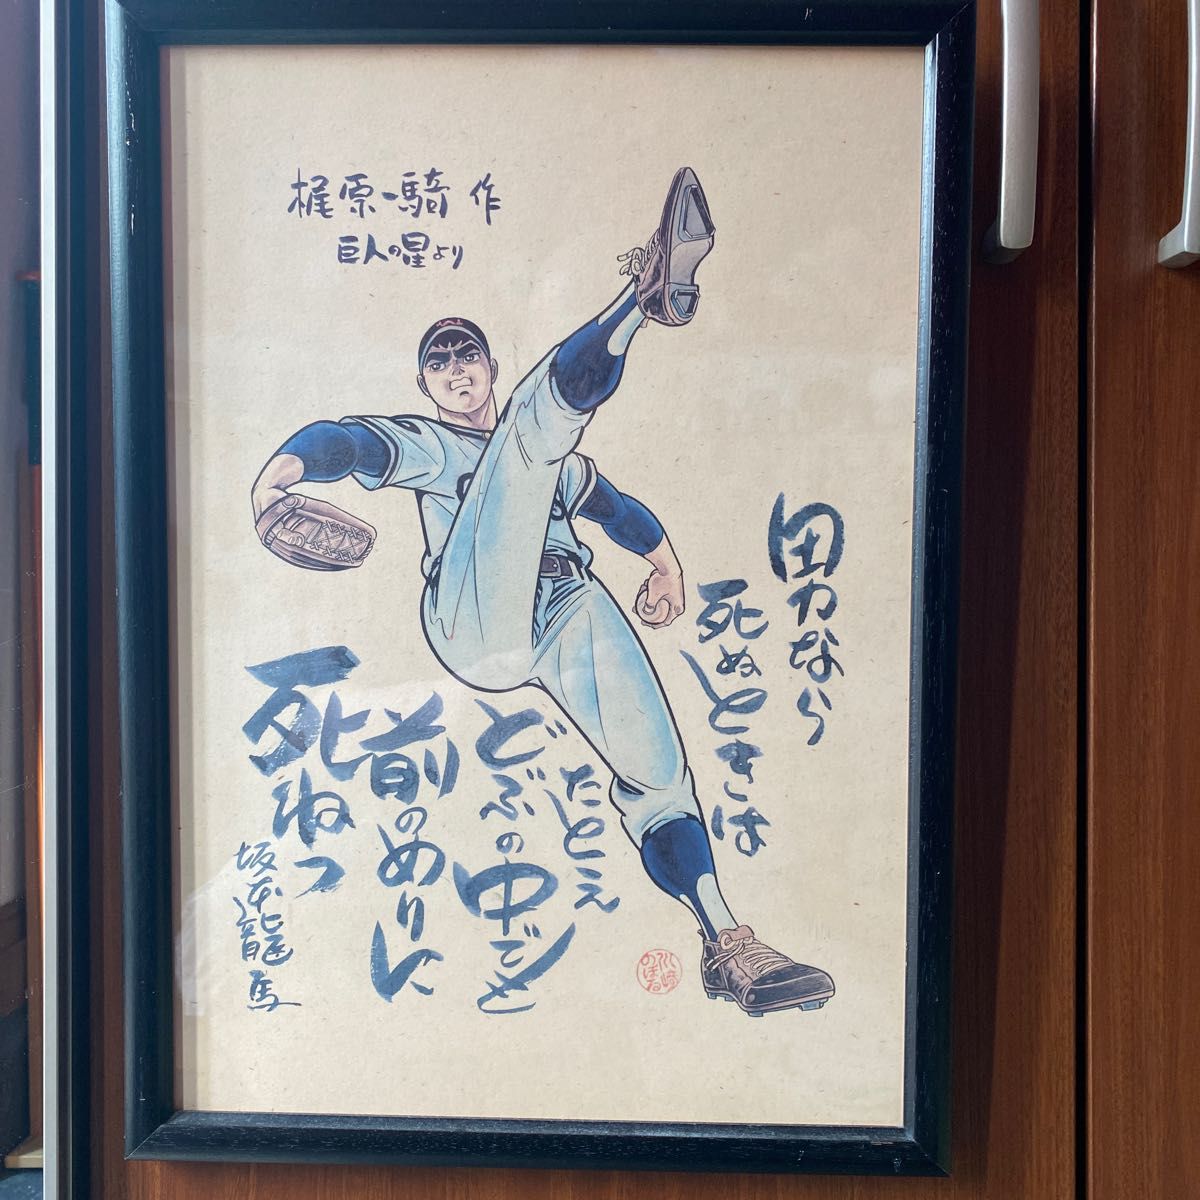 梶原一騎 作
巨人の星より
男なら
死ぬときは
たとえ
どぶの中でも
前のめりに
死ねっ
坂本龍馬
川崎
のぼる